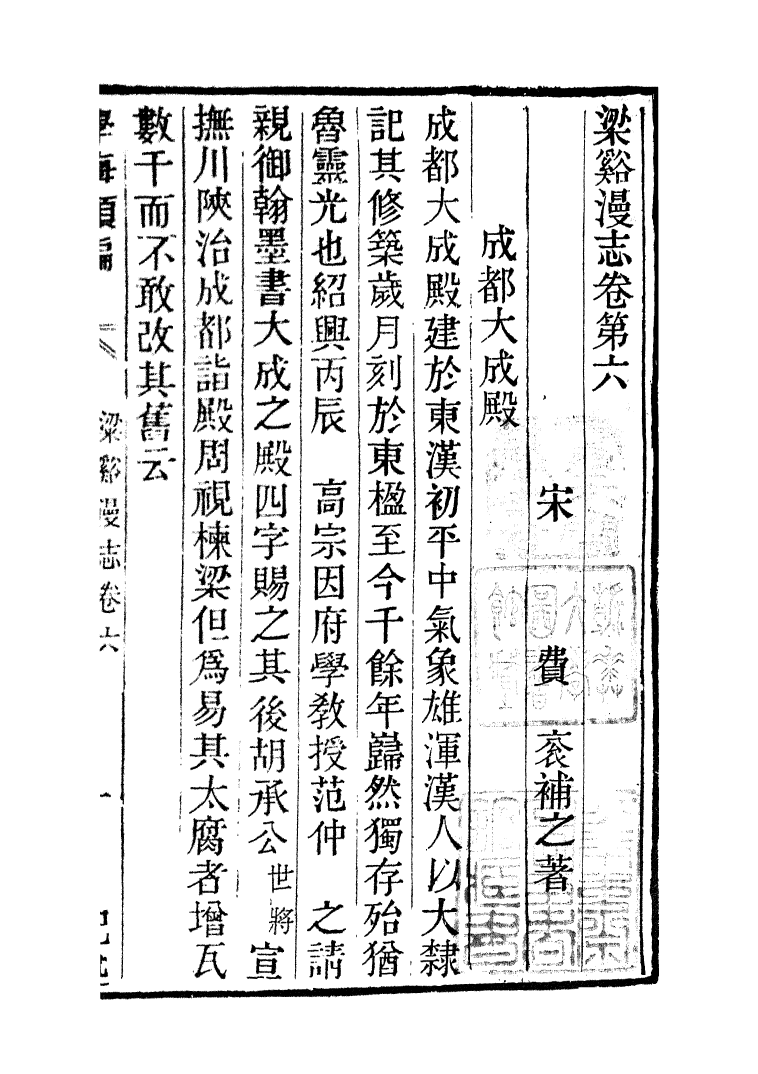 梁谿漫志卷第六
宋　費　袞補之著
成都大成殿
成都大成殿建於東漢初平中氣象雄渾漢人以大隸
記其修築歲月刻於東楹至今千餘年巋然獨存殆猶
魯靈光也紹興丙辰　高宗因府學敎授范仲　之請
親御翰墨書大成之殿四字賜之其後胡承公世將宣
撫川陝治成都詣殿周視棟梁但爲易其太腐者增瓦
數千而不敢改其舊云
學海類編　梁谿漫志卷六　一